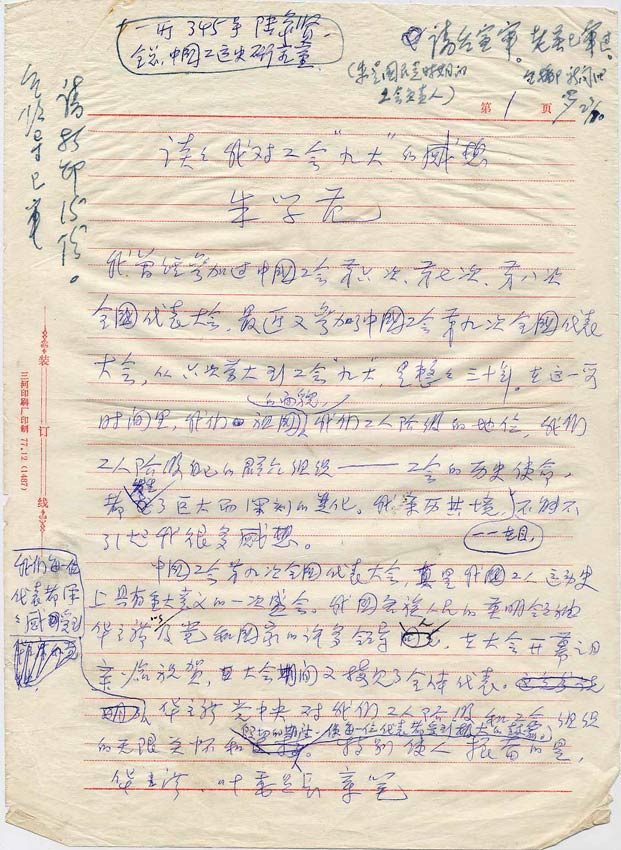 一所345号 陆象贤
全总中国工运史研究室
(朱是国民党时期的
工会负责人)
请打印清样。
第1页
谈谈我对工会“九大”的感想
朱学范
我曾经参加过中国工会第六次、第七次、第八次
全国代表大会,最近又参加了中国工会第九次全国代表
大会,从六次劳大到工会“九大”,是整整三十年。在这一段
时间里,我们祖国的面貌,我们工人阶级的地位,我们
工人阶级自己的群众组织——工会的历史使命,
都发生了巨大而深刻的变化。我亲历其境,不能不
引起我很多感想。
中国工会第九次全国代表大会,真是我国工人运动史
上具有重大意义的一次盛会。我国各族人民的英明领袖
华主席及党和国家的许多领导人,在大会开幕之日
亲临祝贺,大会期间又接见了全体代表。
华主席党中央对我们工人阶级和工会组织
的无限关怀和
殷切的期望,使每一位代表都受到极大的鼓舞。
特别使人振奋的是,
华主席、叶委员长
我们每一位
代表都深
深感受到
装订线
三河印刷厂印制 77.12 (1487)